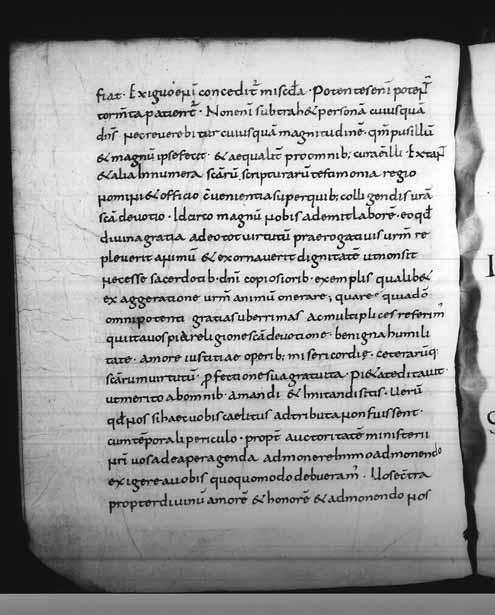 fiat· Exiguo eni concedit̄ miscđa· Potentes eni potet̄
tormta patient̄· Non eni subtrah& personā cuiusquā
dn̄s nec reverebitur cuiusquā magnitudinē· qm̄ pusillū
& magnū ipse fecit· & aequalit̄ pro omnib; cura ē illi· Extat̄
& alia innumera scārū scripturarū testimonia regio
nomini & officio c̄venientia superquib; colligendis urā
scā devotio· Idcirco magnū nobis ademit laborē· eo qđ
divina gratia adeo tot virtutū praerogativis urm̄ re
pleverit animū & exornaverit dignitatē ut non sit
necesse sacerdotib· dnī copiosiorib· exemplis qualib&
ex aggeratione urm̄ animū onerare, quare quia dō
omnipotenti gratias uberrimas ac multiplices referim̄
qui ita vos piā religione scā devotione· benigna humili
tate· amore iustitiae operib; misericordię· ceterarūq;
scārum virtutū ꝓfectione sua gratuita· pi&ate ditavit·
ut merito ab omnib· amandi & imitandi sitis· Verū
qđ nos si haec vobis caelitus adtributa non fuissent·
cum tēporali periculo· propt̄ auctoritatē ministerii
nr̄i vos adea peragenda admonere immo admonendo
exigere a vobis quoquomodo deberem̄· Vos ec̄tra
propter divinū amorē & honorē & admonendo nos